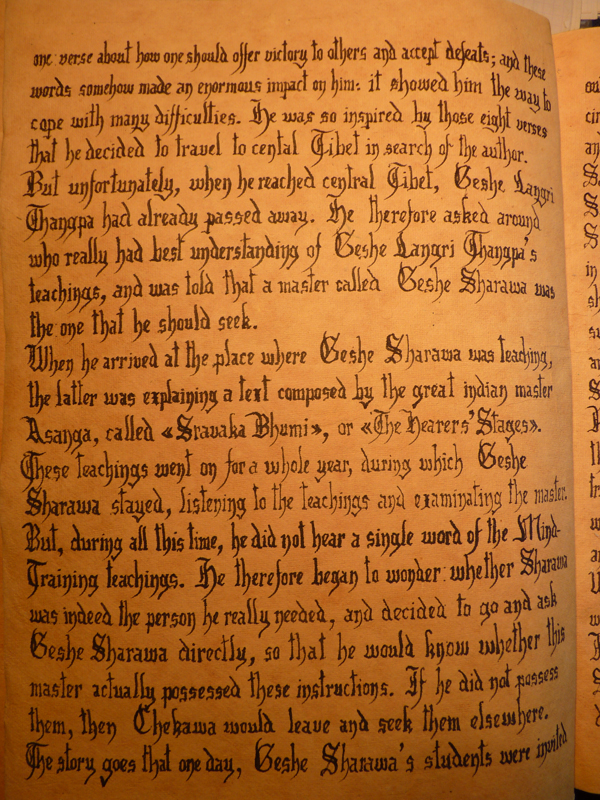 one verse about how one should offer victory to others and accept defeats; and these
words somehow made an enormous impact on him: it showed him the way to
cope with many difficulties. He was so inspired by those eight verses
that he decided to travel to cental Tibet in search of the author.
But unfortunately, when he reached central Tibet, Geshe Langri
Thangpa had already passed away. He therefore asked around
who really had best understanding of Geshe Langri Thangpa's
teachings, and was told that a master called Geshe Sharawa was
the one that he should seek.
When he arrived at the place where Geshe Sharawa was teaching,
the latter was explaining a text composed by the great indian master
Asanga, called «Sravaka Bhumi», or «The Hearers' Stages».
These teachings went on for a whole year, during which Geshe
Sharawa stayed, listening to the teachings and examinating the master.
But, during all this time, he did not hear a single word of the Mind-
Training teachings. He therefore began to wonder whether Sharawa
was indeed the person he really needed, and decided to go and ask
Geshe Sharawa directly, so that he would know whether this
master actually possessed these instructions. If he did not possess
them, then Chekawa would leave and seek them elsewhere.
The story goes that one day, Geshe Sharawa's students were invited